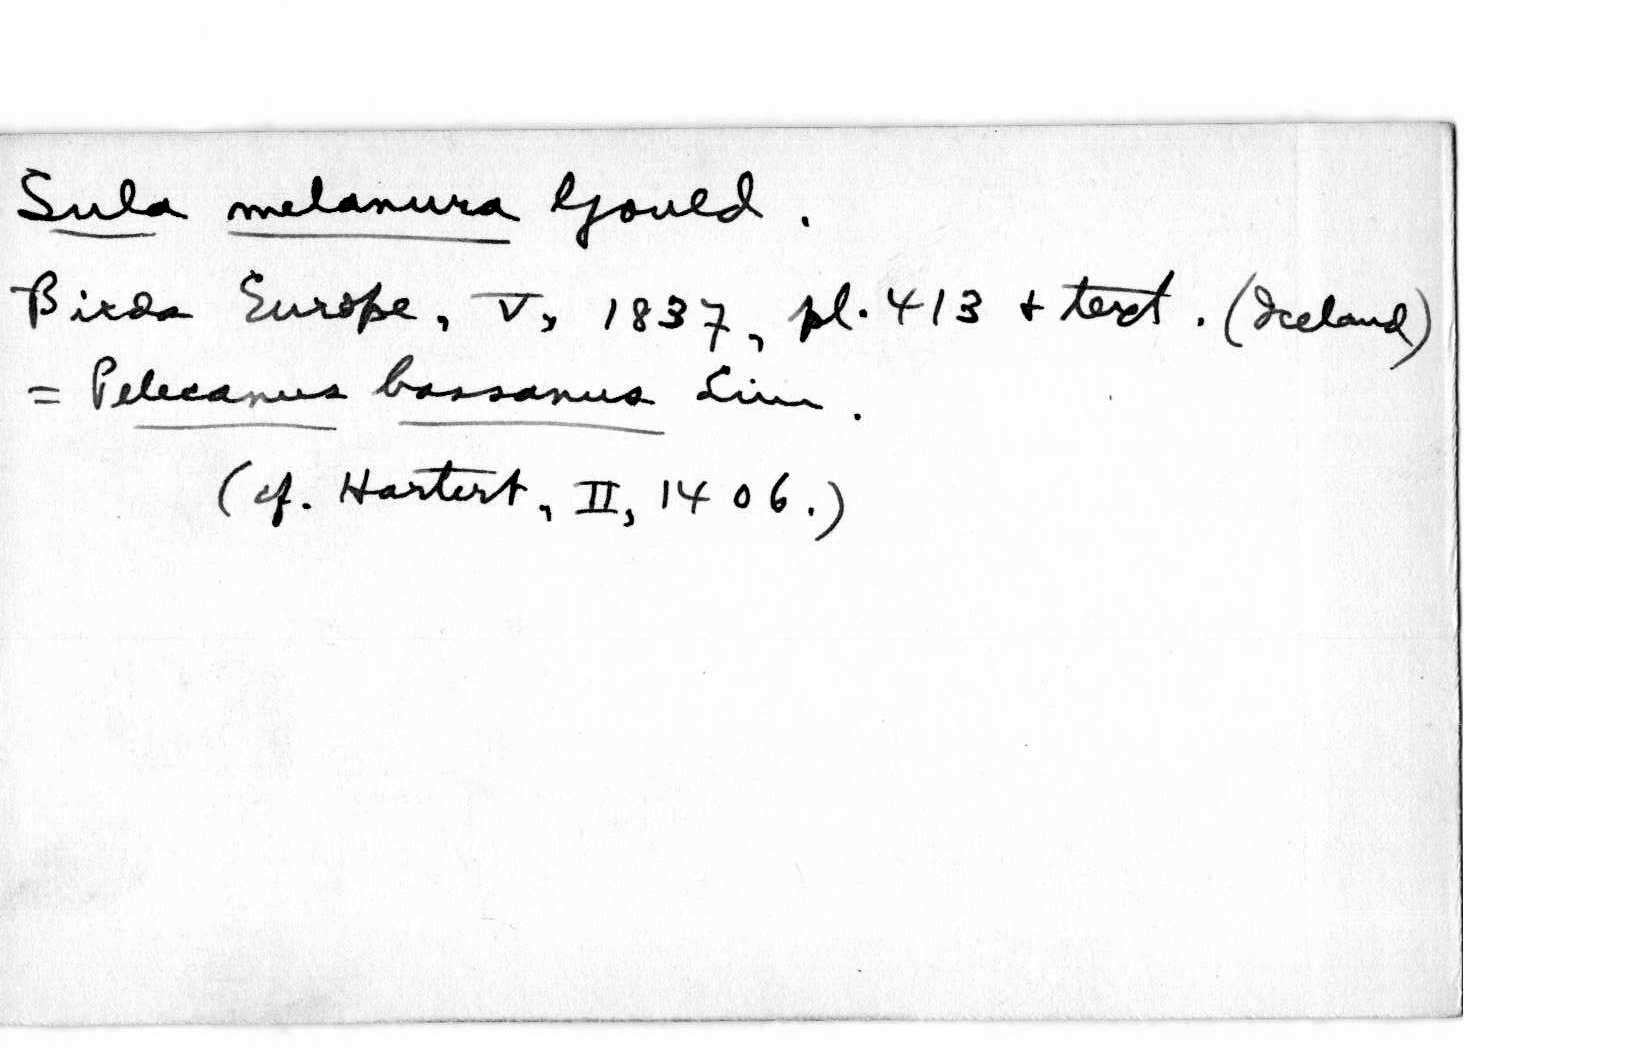 Sula melanura Gould.
Birds Europe, V, 1837, pl. 413 + text. (Iceland)
= Pelecanus bassanus Linn.
(cf. Hartert, II, 1406.)